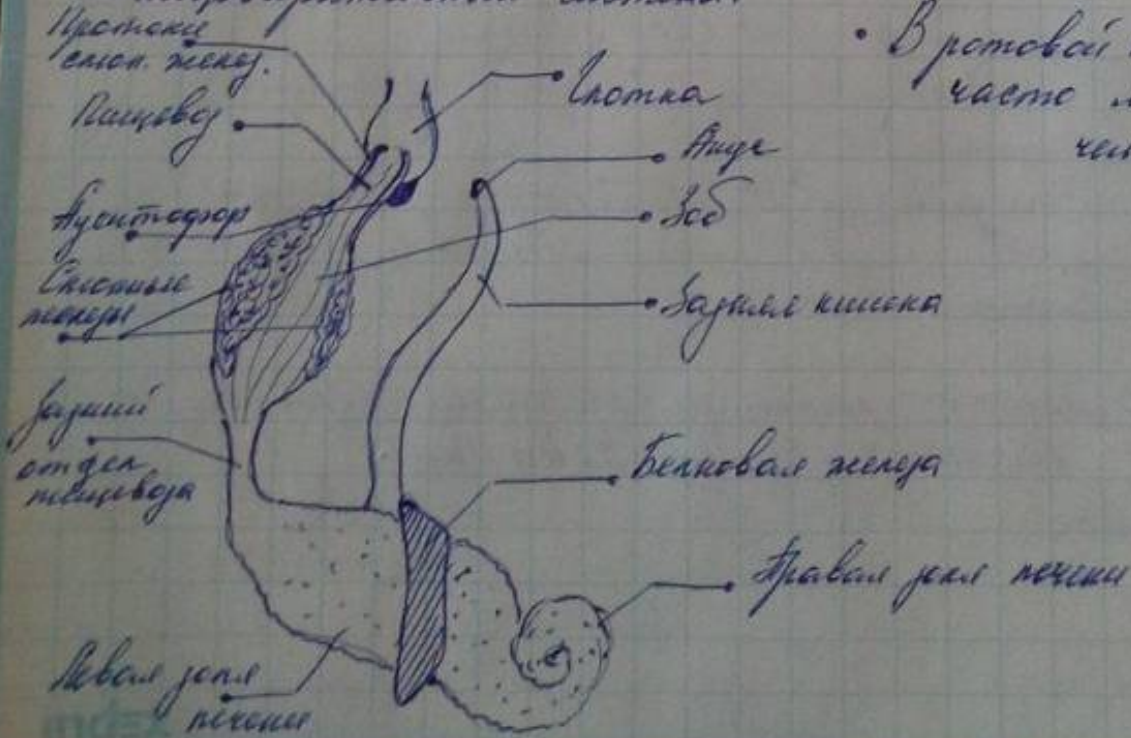 Протоки
слюн. желез.
Пищевод
Слюнные
железы
Задний
отдел
пищевода
Левая доля
печени
Глотка
Анус
Зоб
Задняя кишка
Белковая железа
Правая доля печени
• В ротовой
часто